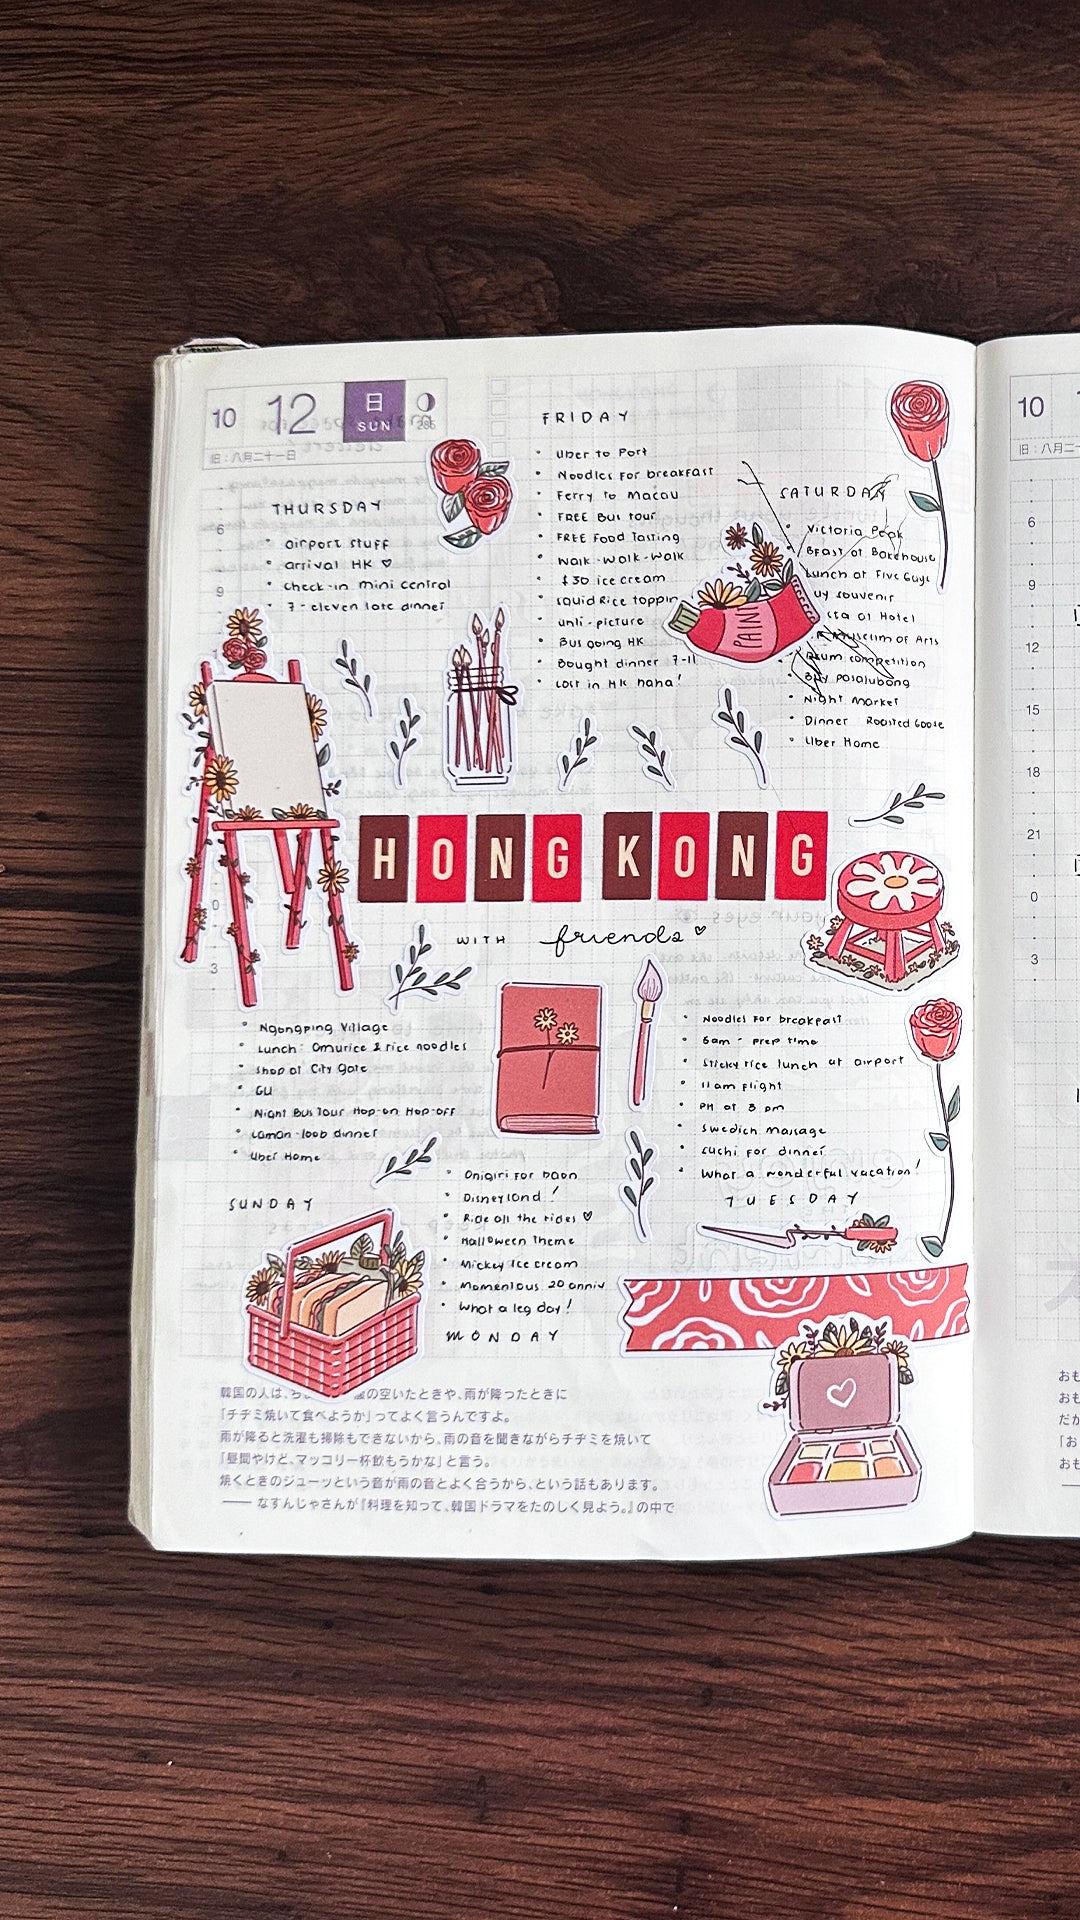 10 12 日 SUN 286
旧:八月二十一日
THURSDAY
airport stuff
arrival HK ♡
check-in mini central
7-eleven late dinner
FRIDAY
Uber to Port
Noodles for breakfast
Ferry to Macau
FREE Bus tour
FREE Food Tasting
walk-walk-walk
$30 ice cream
squid Rice
unli-picture
Bus going HK
Bought dinner 7-11
Lost in HK haha!
SATURDAY
Victoria Peak
Bfast at Bakehouse
Lunch at Five Guys
souvenir
at Hotel
Museum of Arts
competition
Buy pasalubong
Night Market
Dinner Roasted Goose
Uber Home
PAINT
6
9
12
15
18
21
0
3
HONG KONG
WITH friends ♡
Ngongping Village
Lunch: Omurice & rice noodles
Shop at City Gate
GU
Night Bus Tour Hop-on Hop-off
dinner
Uber Home
SUNDAY
Onigiri for baon
Disneyland!
Ride all the rides ♡
Halloween Theme
Mickey Ice cream
Momentous 20 anniv
What a leg day!
MONDAY
Noodles for breakfast
6am - prep time
Sticky rice lunch at airport
11am Flight
PH at 3 pm
Swedish Massage
sushi for dinner
What a wonderful vacation!
TUESDAY
韓国の人は、の空いたときや、雨が降ったときに
「チヂミ焼いて食べようか」ってよく言うんですよ。
雨が降ると洗濯も掃除もできないから、雨の音を聞きながらチヂミを焼いて
「昼間やけど、マッコリ一杯飲もうかな」と言う。
焼くときのジューッという音が雨の音とよく合うから、という話もあります。
—— なすんじゃさんが『料理を知って、韓国ドラマをたのしく見よう。』の中で
10
旧:八月
6
9
12
15
18
21
0
3